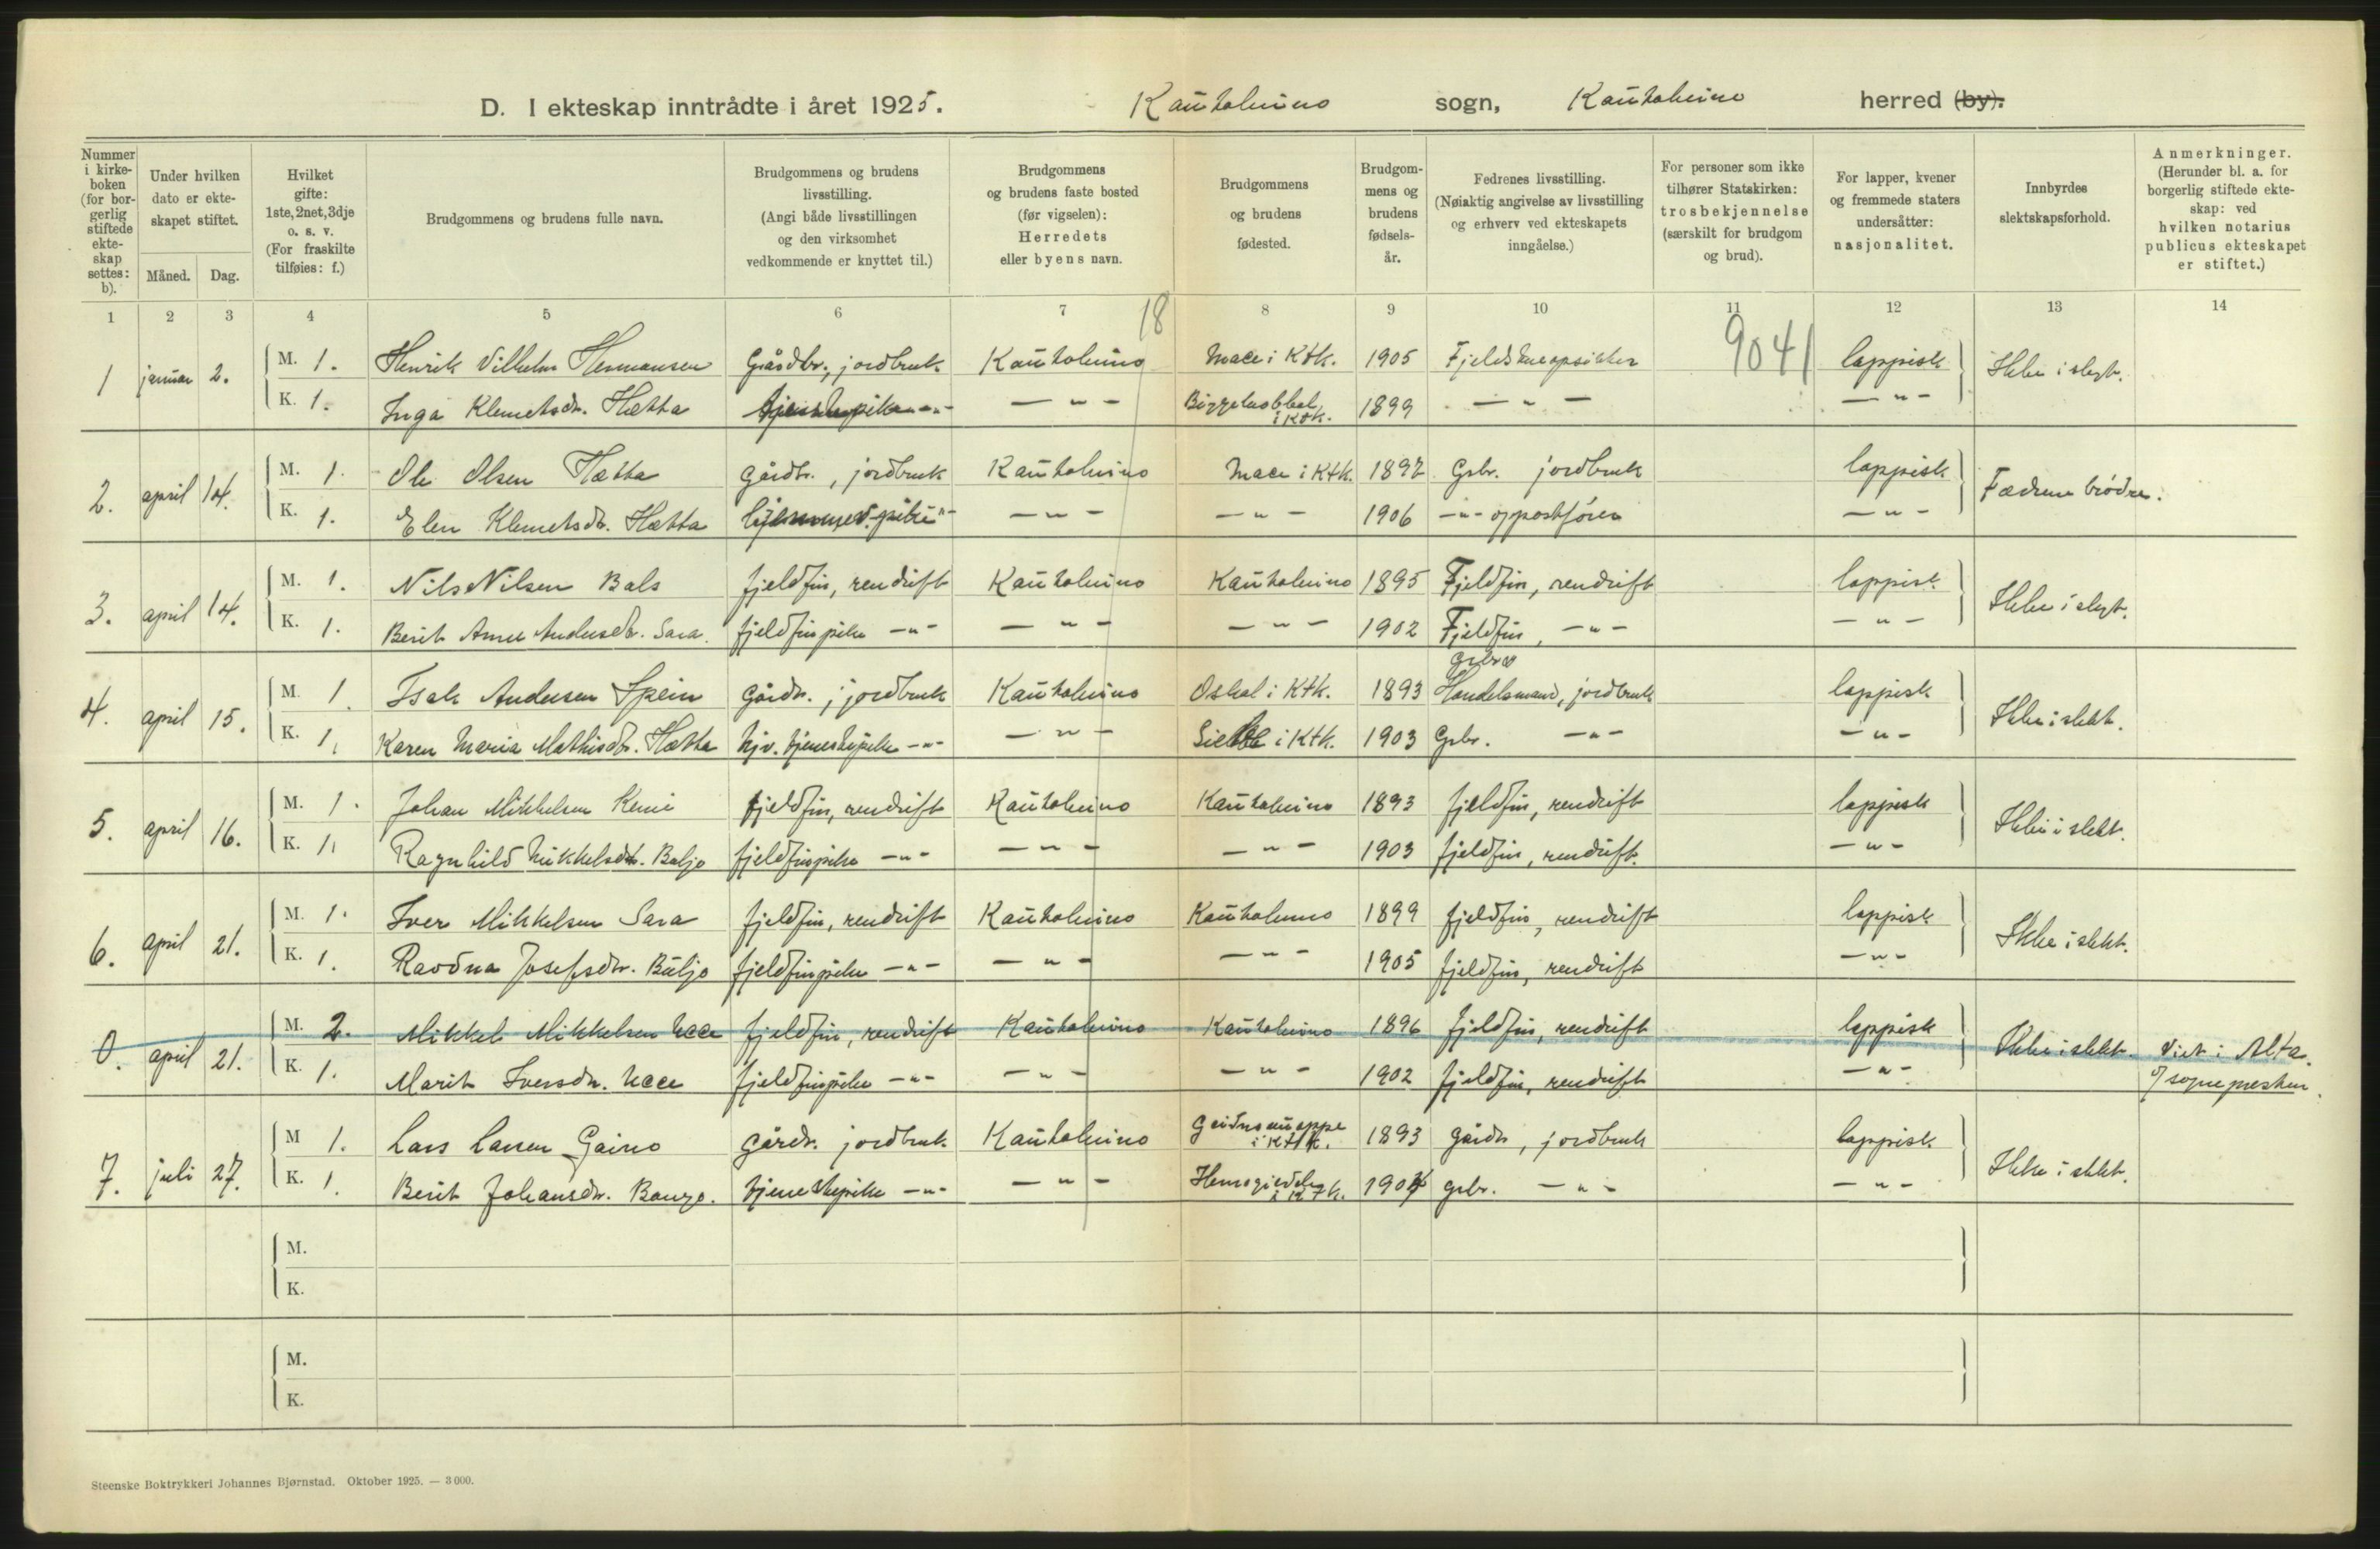 D. I ekteskap inntrådte i året 1925. Kautokeino sogn, Kautokeino herred (by).
Nummer i kirkeboken (for borgerlig stiftede ekteskap settes: b).
Under hvilken dato er ekteskapet stiftet.
Måned. Dag.
Hvilket gifte: 1ste, 2net, 3dje o. s. v. (For fraskilte tilføies: f.)
Brudgommens og brudens fulle navn.
Brudgommens og brudens livsstilling. (Angi både livsstillingen og den virksomhet vedkommende er knyttet til.)
Brudgommens og brudens faste bosted (før vigselen): Herredets eller byens navn.
Brudgommens og brudens fødested.
Brudgommens og brudens fødselsår.
Fedrenes livsstilling. (Nøiaktig angivelse av livsstilling og erhverv ved ekteskapets inngåelse.)
For personer som ikke tilhører Statskirken: trosbekjennelse (særskilt for brudgom og brud).
For lapper, kvener og fremmede staters undersåtter: nasjonalitet.
Innbyrdes slektskapsforhold.
Anmerkninger. (Herunder bl. a. for borgerlig stiftede ekteskap: ved hvilken notarius publicus ekteskapet er stiftet.)
1 2 3 4 5 6 7 8 9 10 11 12 13 14
18 9041
1 januar 2. M. 1. Henrik Vilhelm Hermansen Gårdbr., jordbruk Kautokeino Mace i Ktk. 1905 lappisk Ikke i slegt.
K. 1. Inga Klemetsdr. Hætta tjenestepike -"- — " — i Ktk. 1899 — " — — " —
2. april 14. M. 1. Ole Olsen Hætta Gårdbr., jordbruk Kautokeino Mace i Ktk. 1897 Grbr. jordbruk lappisk
K. 1. Elen Klemetsdr. Hætta — " — — " — 1906 -"- og postfører — " —
3. april 14. M. 1. Nils Nilsen Bals fjeldfin, rendrift Kautokeino Kautokeino 1895 Fjeldfin, rendrift lappisk Ikke i slegt.
K. 1. Berit Anne Andersdr. Sara. fjeldfinpike -"- — " — — " — 1902 Fjeldfin, -"- — " —
4. april 15. M. 1. Isak Andersen Spein Gårdbr., jordbruk Kautokeino Oskal i Ktk. 1893 Grbr og Handelsmand, jordbruk lappisk Ikke i slekt.
K. 1. Karen Maria Mathisdr. Hætta hjv. tjenestepike -"- — " — i Ktk. 1903 Grbr. -"- — " —
5. april 16. M. 1. Johan Mikkelsen Kemi fjeldfin, rendrift Kautokeino Kautokeino 1893 fjeldfin, rendrift lappisk Ikke i slekt.
K. 1. Ragnhild Mikkelsdtr. Buljo fjeldfinpike -"- — " — — " — 1903 fjeldfin, rendrift. — " —
6. april 21. M. 1. Iver Mikkelsen Sara fjeldfin, rendrift Kautokeino Kautokeino 1899 fjeldfin, rendrift lappisk Ikke i slekt.
K. 1. Ravdna Josefsdtr. Buljo fjeldfinpike -"- — " — — " — 1905 fjeldfin, rendrift — " —
0. april 21. M. 2. Mikkel Mikkelsen Ucce fjeldfin, rendrift Kautokeino Kautokeino 1896 fjeldfin, rendrift lappisk Ikke i slekt. Viet i Alta.
K. 1. Marit Iversdr. Ucce fjeldfinpike -"- — " — — " — 1902 fjeldfin, rendrift — " — sognepresten.
7. juli 27. M 1. Lars Larsen Gaino Gårdbr. jordbruk Kautokeino i Ktk. 1893 Gårdbr, jordbruk lappisk Ikke i slekt.
K. 1. Berit Johansdr. Bongo. tjenestepike -"- — " — i Ktk. Grbr. — " — — " —
M.
K.
M.
K.
Steenske Boktrykkeri Johannes Bjørnstad. Oktober 1925. — 3 000.